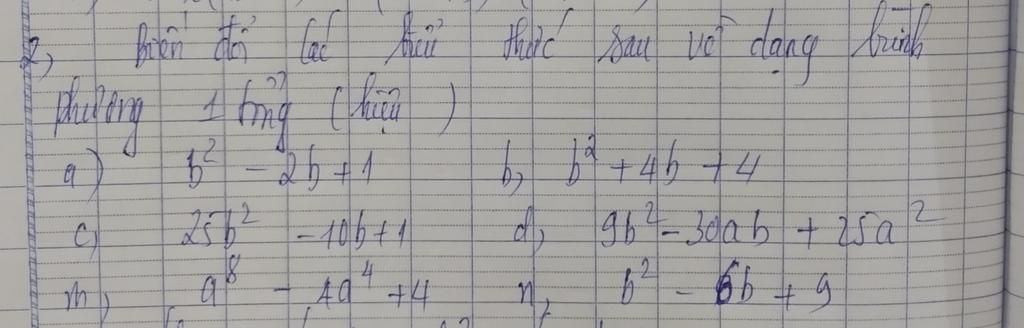 2, biến đổi các biểu thức sau về dạng bình
phương 1 tổng (hiệu)
a) b² - 2b + 1 b, b² + 4b + 4
c, 25b² - 10b + 1 d, 9b² - 30ab + 25a²
m, a⁸ - 4a⁴ + 4 n, b² - 6b + 9